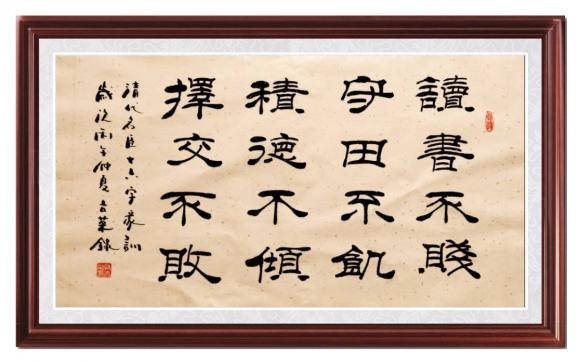 讀書不賤
守田不飢
積德不傾
擇交不敗
清代名臣十六字家訓